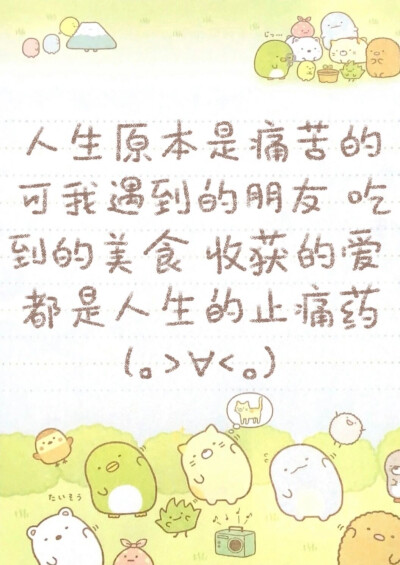 じーっ…
人生原本是痛苦的
可我遇到的朋友 吃
到的美食 收获的爱
都是人生的止痛药
(｡>∀<｡)
たいそう